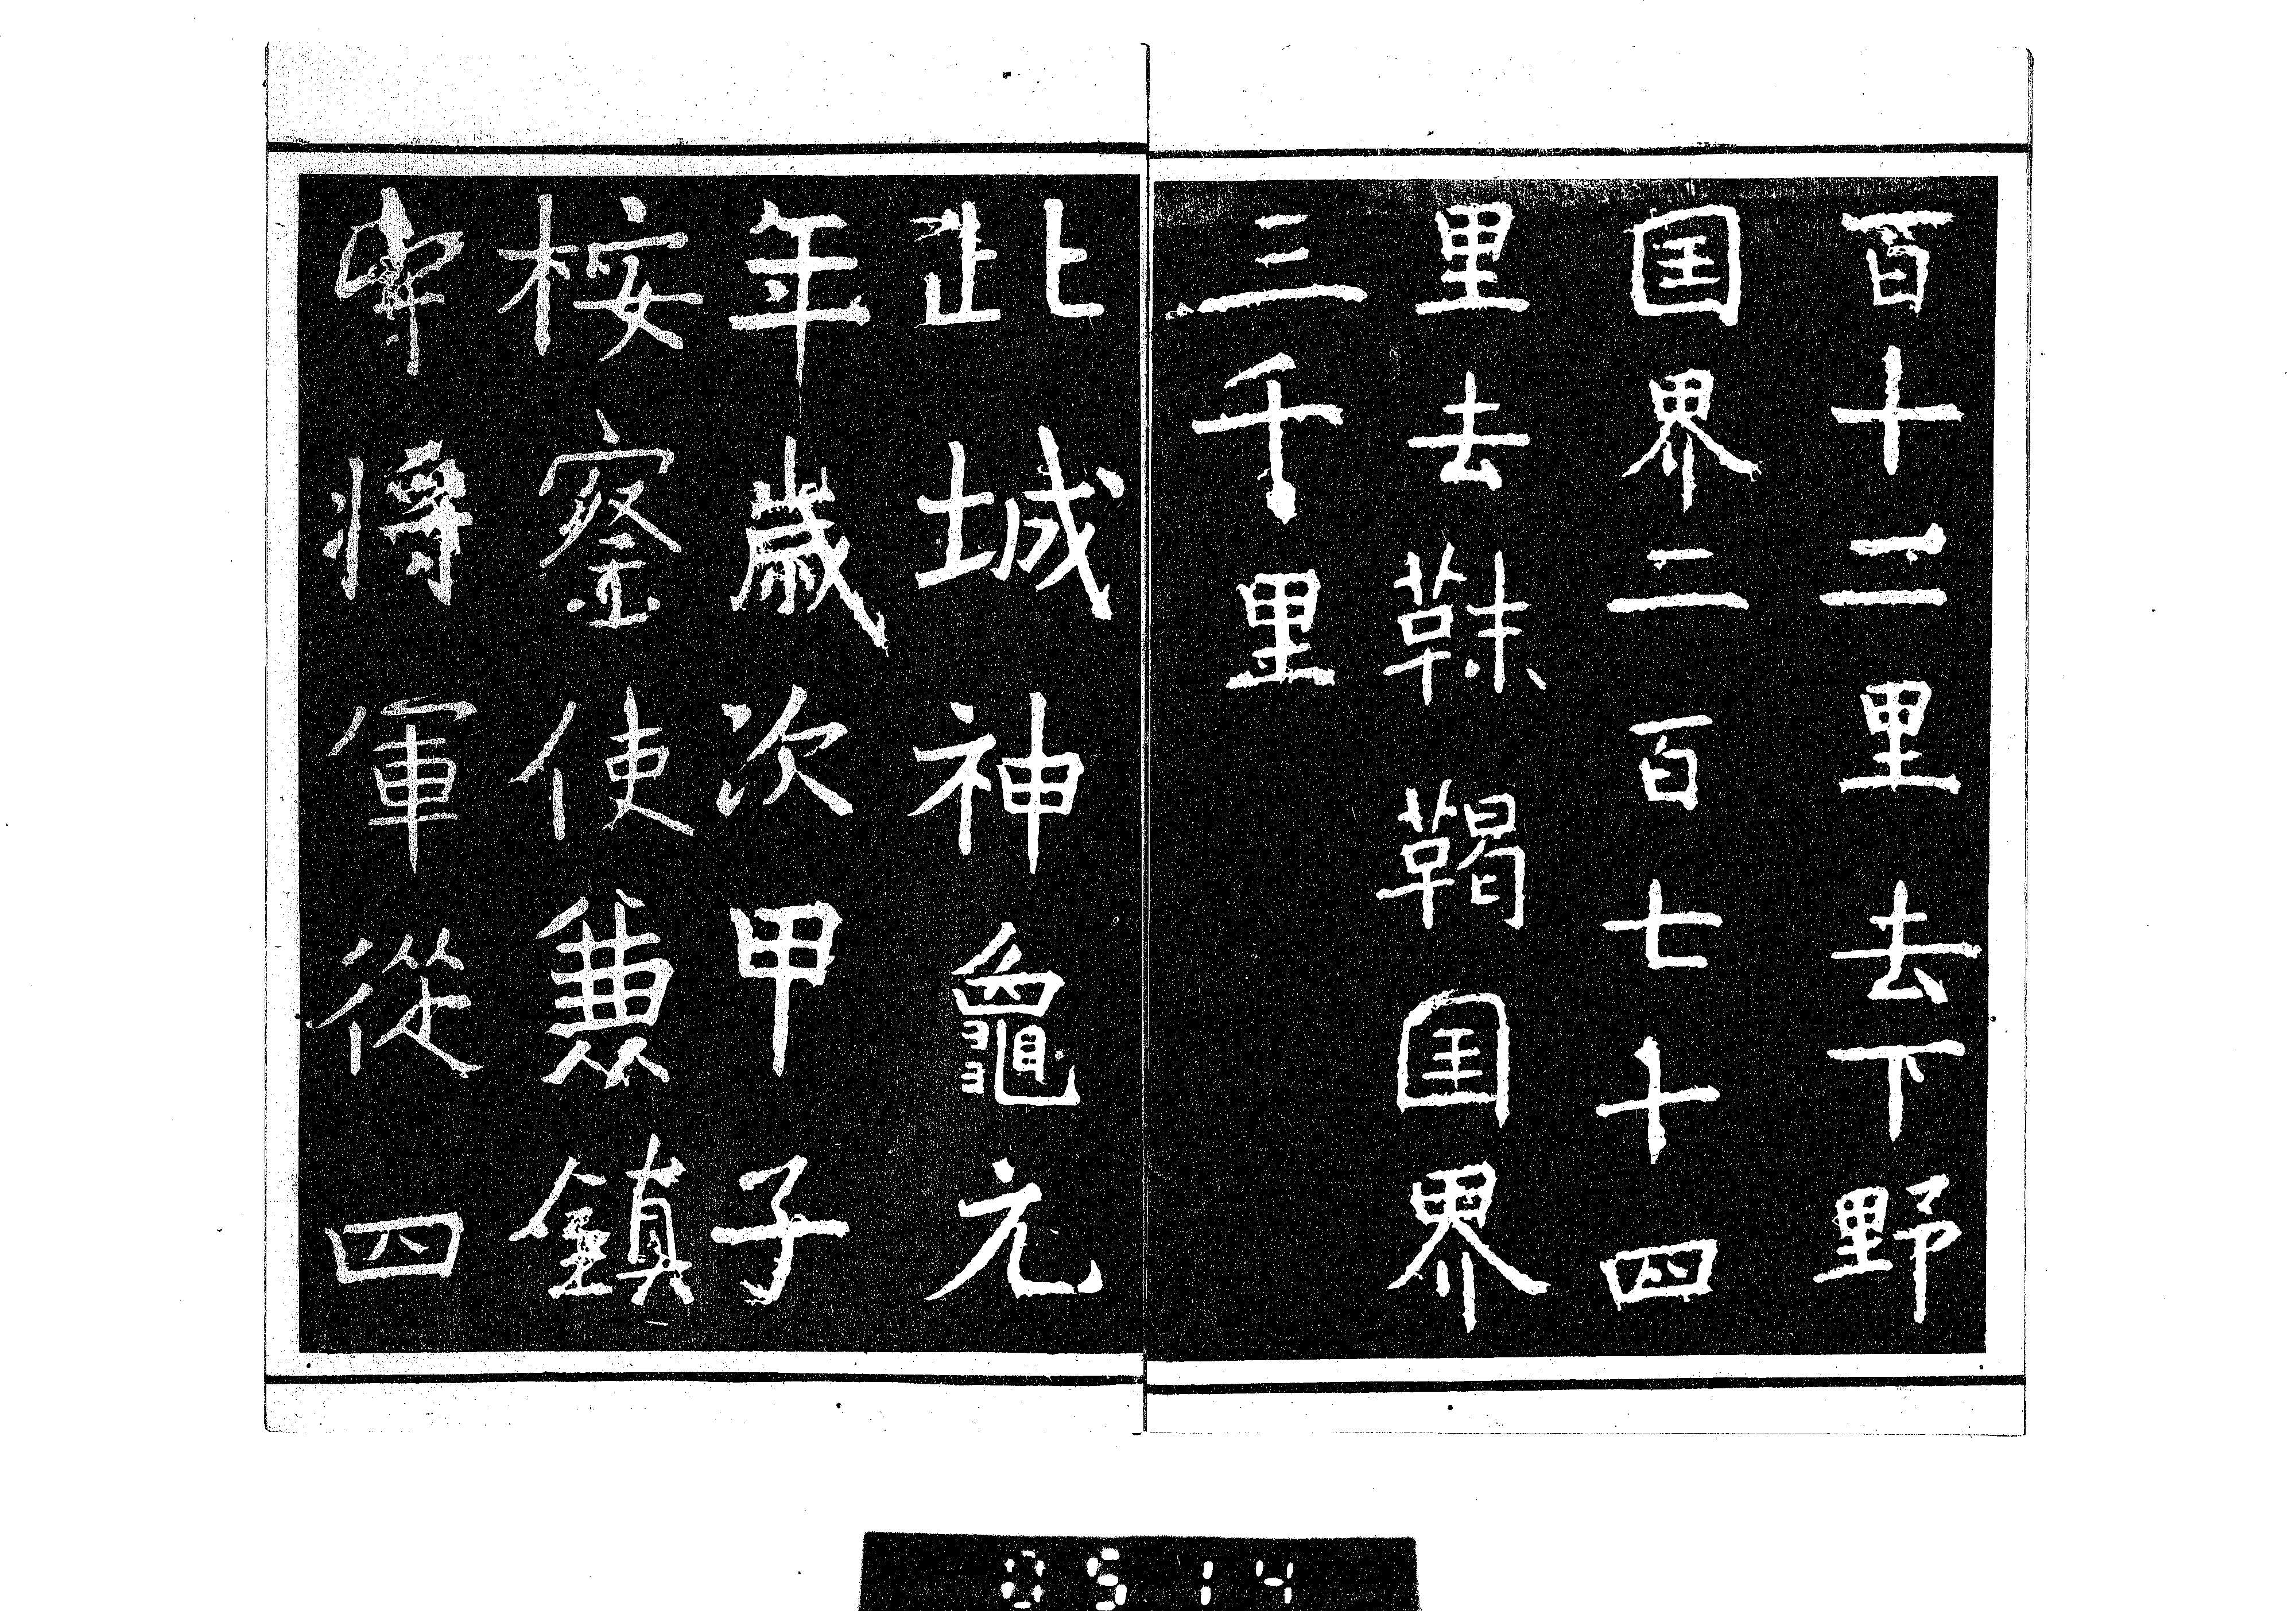 百十二里去下野
囯界二百七十四
里去靺鞨囯界
三千里
此城神龜元
年歳次甲子
桉察使兼鎮
守將軍從四
0514